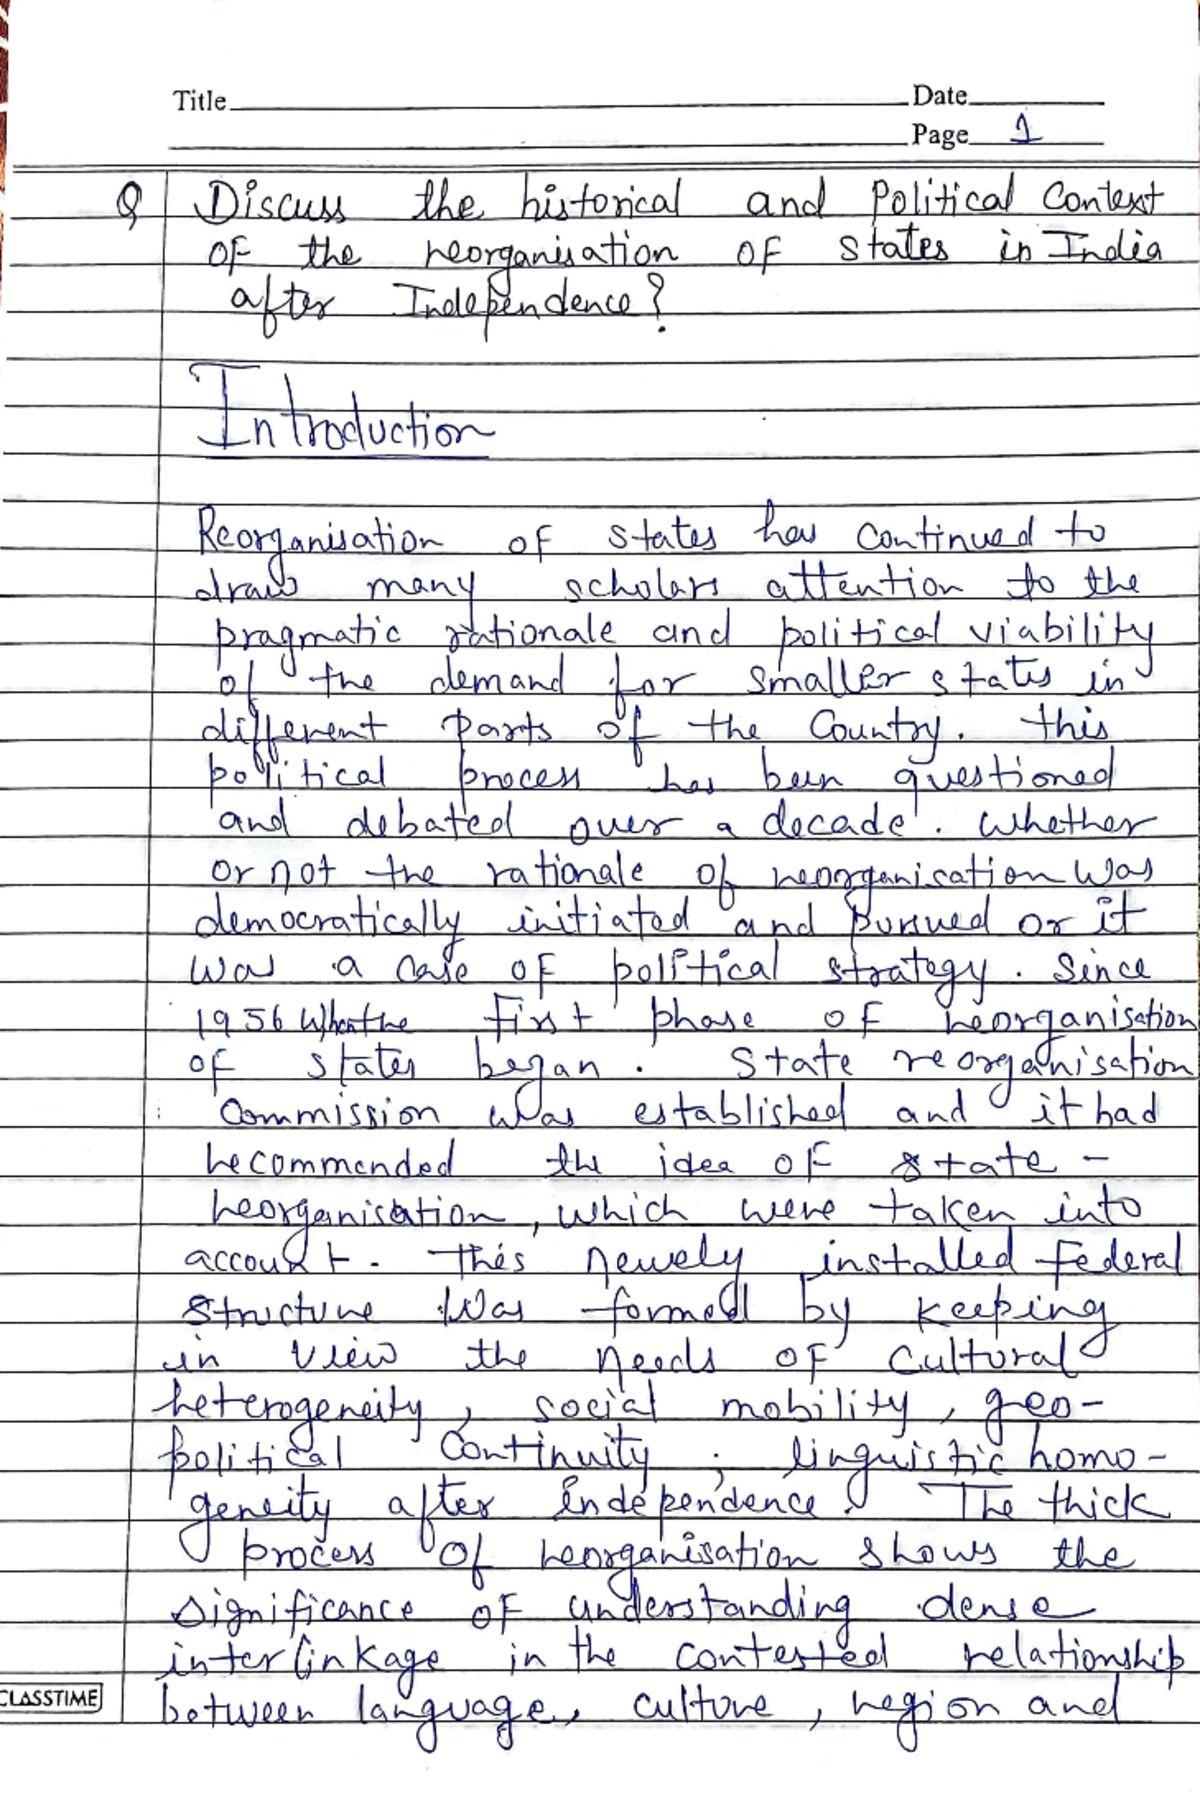 Title
Date
Page 1
Q Discuss the historical and Political Context
of the reorganisation of states in India
after Independence?
Introduction
Reorganisation of states has continued to
draw many scholars attention to the
pragmatic rationale and political viability
of the demand for smaller states in
different parts of the Country. This
political process has been questioned
and debated over a decade. Whether
or not the rationale of reorganisation was
democratically initiated and pursued or it
was a case of political strategy. Since
1956 when the First phase of reorganisation
of states began. State reorganisation
Commission was established and it had
recommended the idea of state-
reorganisation, which were taken into
account. This newely installed Federal
structure was formed by keeping
in view the needs of cultural
heterogeneity, social mobility, geo-
political Continuity, linguistic homo-
geneity after independence. The thick
process of reorganisation shows the
significance of understanding dense
interlinkage in the contested relationship
between language, culture, region and
CLASSTIME